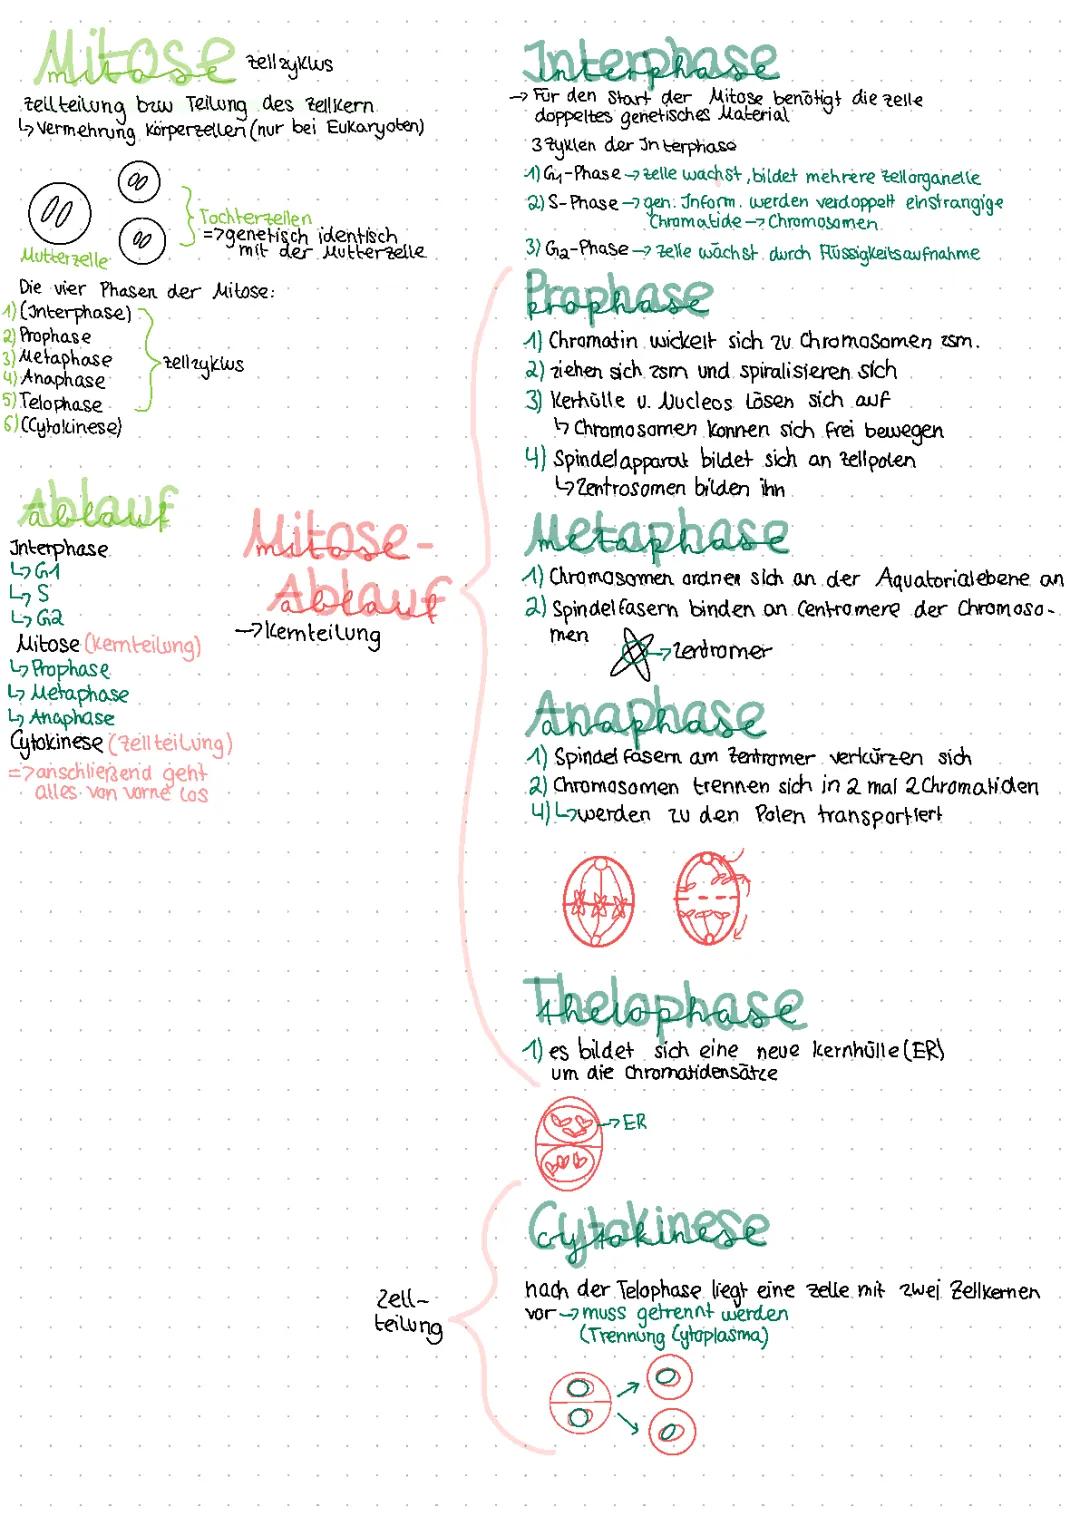 Mitose
mitose
zellzyklus
zellteilung bzw Teilung des zellkern
↳ Vermehrung Körperzellen (nur bei Eukaryoten)
Mutterzelle
Tochterzellen
=> genetisch identisch
mit der Mutterzelle
Die vier Phasen der Mitose:
1) (Interphase)
2) Prophase
3) Metaphase
4) Anaphase
5) Telophase
6) (Cytokinese)
zellzyklus
Ablauf
ablauf
Interphase
↳ G1
↳ S
↳ G2
Mitose (Kernteilung)
↳ Prophase
↳ Metaphase
↳ Anaphase
Cytokinese (Zellteilung)
=> anschließend geht
alles von vorne los
Mitose-
mitose
Ablauf
ablauf
→ Kernteilung
Interphase
interphase
→ Für den Start der Mitose benötigt die zelle
doppeltes genetisches Material
3 Zyklen der Interphase
1) G1-Phase → zelle wächst, bildet mehrere zellorganelle
2) S-Phase → gen. Inform. werden verdoppelt einstrangige
Chromatide → Chromosomen
3) G2-Phase → zelle wächst durch Flüssigkeitsaufnahme
Prophase
prophase
1) Chromatin wickelt sich zu Chromosomen zsm.
2) ziehen sich zsm und spiralisieren sich
3) Kerhülle u. Nucleos lösen sich auf
↳ Chromosomen können sich frei bewegen
4) Spindelapparat bildet sich an zellpolen
↳ Zentrosomen bilden ihn
Metaphase
metaphase
1) Chromosomen ordnen sich an der Äquatorialebene an
2) Spindelfasern binden an Centromere der Chromoso-
men
→ Zentromer
Anaphase
anaphase
1) Spindelfasern am Zentromer verkürzen sich
2) Chromosomen trennen sich in 2 mal 2 Chromatiden
4) ↳ werden zu den Polen transportiert
Thelophase
thelophase
1) es bildet sich eine neue Kernhülle (ER)
um die Chromatidensätze
→ ER
Cytokinese
cytokinese
nach der Telophase liegt eine zelle mit zwei Zellkernen
vor → muss getrennt werden
(Trennung Cytoplasma)
Zell-
teilung